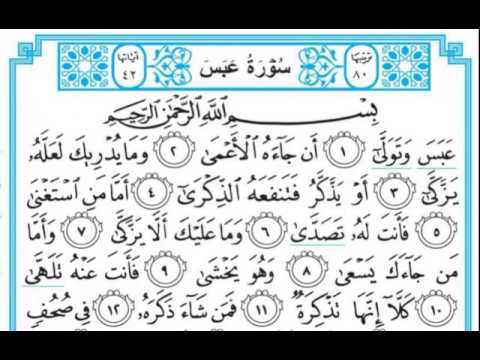 ترتيبها ٨٠ سُورَةُ عَبَسَ آياتها ٤٢
بِسْمِ ٱللَّهِ ٱلرَّحْمَٰنِ ٱلرَّحِيمِ
عَبَسَ وَتَوَلَّىٰٓ ١ أَن جَآءَهُ ٱلْأَعْمَىٰ ٢ وَمَا يُدْرِيكَ لَعَلَّهُۥ
يَزَّكَّىٰٓ ٣ أَوْ يَذَّكَّرُ فَتَنفَعَهُ ٱلذِّكْرَىٰٓ ٤ أَمَّا مَنِ ٱسْتَغْنَىٰ
٥ فَأَنتَ لَهُۥ تَصَدَّىٰ ٦ وَمَا عَلَيْكَ أَلَّا يَزَّكَّىٰ ٧ وَأَمَّا
مَن جَآءَكَ يَسْعَىٰ ٨ وَهُوَ يَخْشَىٰ ٩ فَأَنتَ عَنْهُ تَلَهَّىٰ
١٠ كَلَّآ إِنَّهَا تَذْكِرَةٌ ١١ فَمَن شَآءَ ذَكَرَهُۥ ١٢ فِى صُحُفٍ